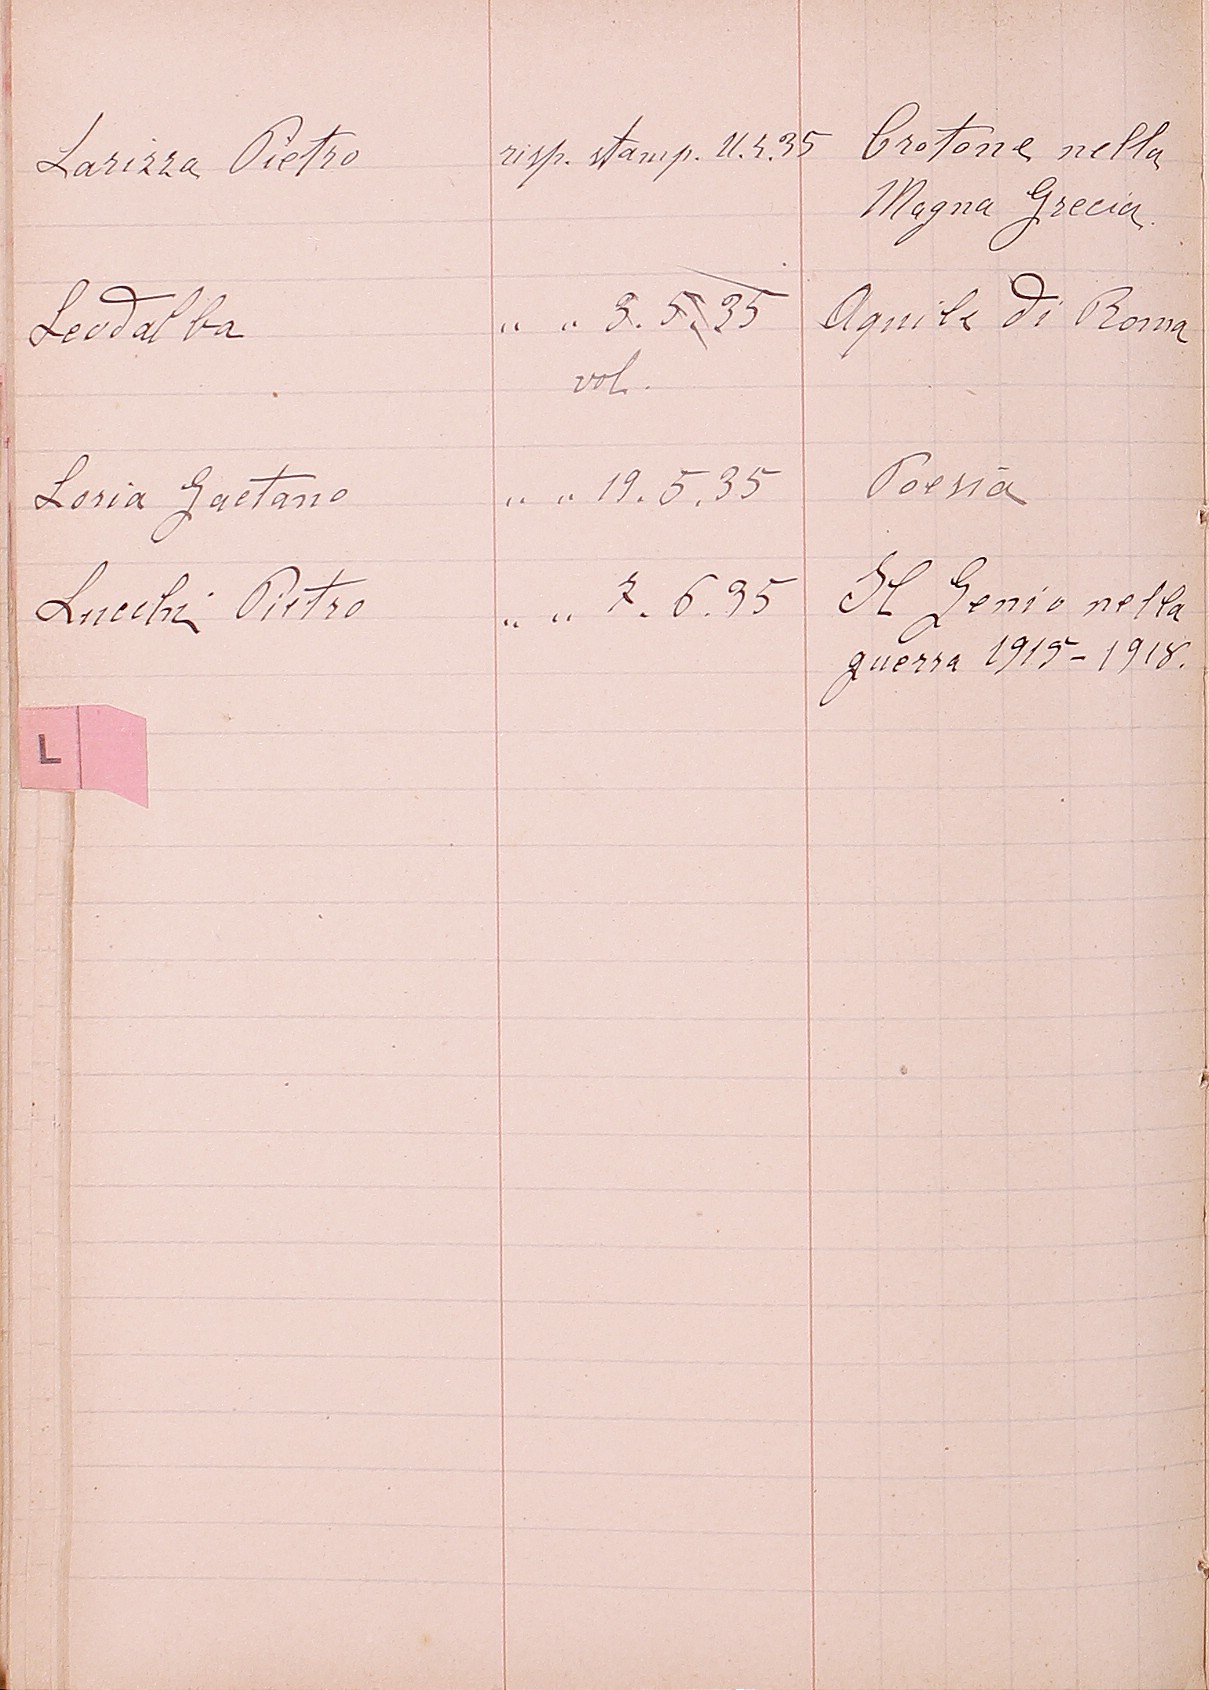 Larizza Pietro risp. stamp. 11.4.35 Crotone nella
Magna Grecia.
Leodalba " " 3.5.35 Aquile di Roma
vol.
Loria Gaetano " " 19.5.35 Poesia
Lucchi Pietro " " 7.6.35 Il Genio nella
guerra 1915-1918.
L